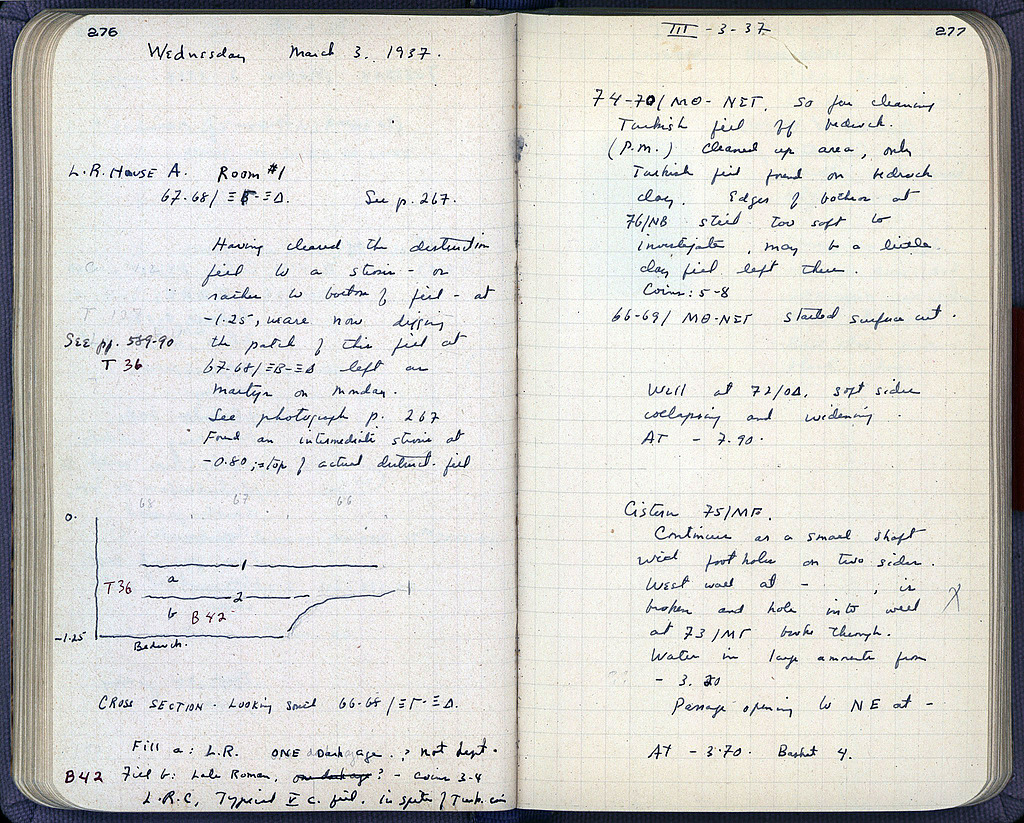 276
Wednesday March 3. 1937.
L.R. House A. Room #1
67-68/ΞΓ-ΞΔ. See p. 267.
Having cleared the destruction
fill to a strosis - or
rather to bottom of fill - at
-1.25, we are now digging
See pp. 589-90
the patch of this fill at
T 36
67-68/ΞΒ-ΞΔ left as
martyr on Monday.
See photograph p. 267
Found an intermediate strosis at
-0.80; = top of actual destruct. fill
68 67 66
0.
1
a
T 36
2
b B 42
-1.25
Bedrock.
Cross Section - Looking South 66-68/ΞΓ-ΞΔ.
Fill a: L.R. ONE Dark age. ? Not kept.
B42 Fill b: Late Roman, one dark age? - Coins 3-4
L.R.C, Typical V c. fill. in spite of Turk. coin
277
III - 3 - 37
74-70/ΜΘ-ΝΣΤ. So far cleaning
Turkish fill off bedrock.
(P.M.) Cleaned up area, only
Turkish fill found on bedrock
clay. Edges of bothros at
76/ΝΒ still too soft to
investigate, may be a little
clay fill left there.
Coins: 5-8
66-69/ΜΘ-ΝΣΤ started surface cut.
Well at 72/ΟΔ. soft sides
collapsing and widening.
AT - 7.90.
Cistern 75/ΜΓ.
Continues as a small shaft
with foot holes on two sides.
West wall at - , is
broken and hole into well
at 73/ΜΓ broke through.
Water in large amounts from
- 3.20
Passage opening to NE at -
At - 3.70. Basket 4.
X